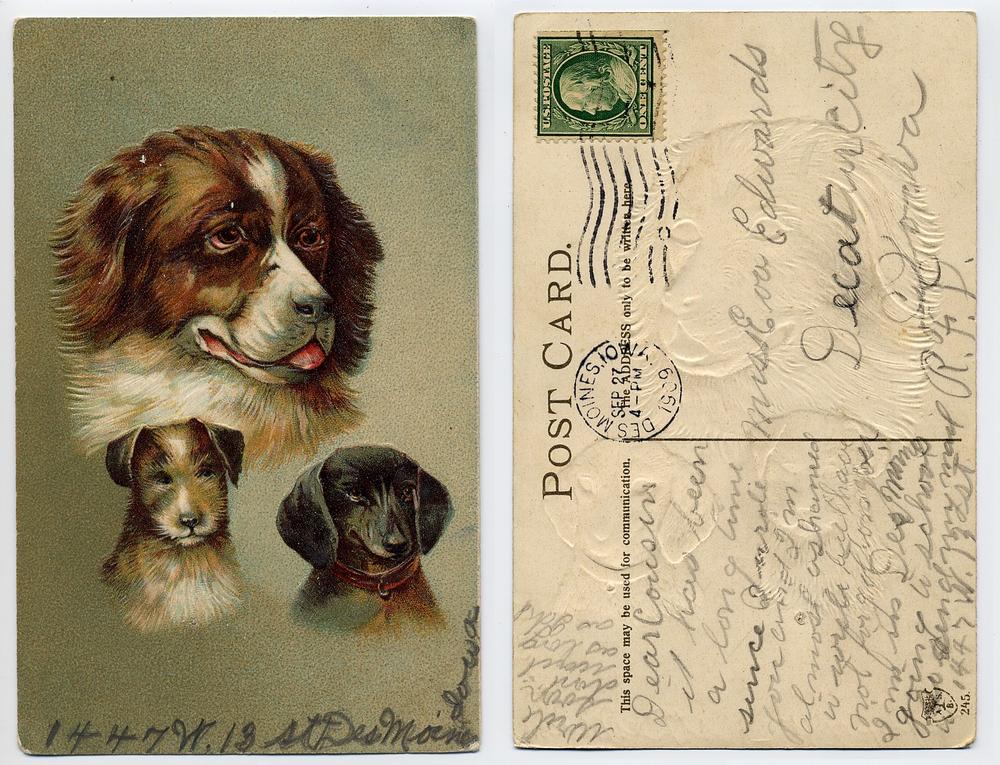 1447 W. 13 st Des Moines
Iowa
U.S. POSTAGE
ONE CENT
POST CARD.
The ADDRESS only to be written here.
DES MOINES, IOWA
SEP 27
4-PM
1909
Miss Eva Edwards
Decatur City
Iowa
R.F.
This space may be used for communication.
Dear Cousin
it has been
a long time
since I wrole
you and I'm
almost ashamed
to write but have
not forgotten
am in Des Moines
going to school
1447 W. 13 st
Write
soon
dont
wait
as long
as I did
B.
245.